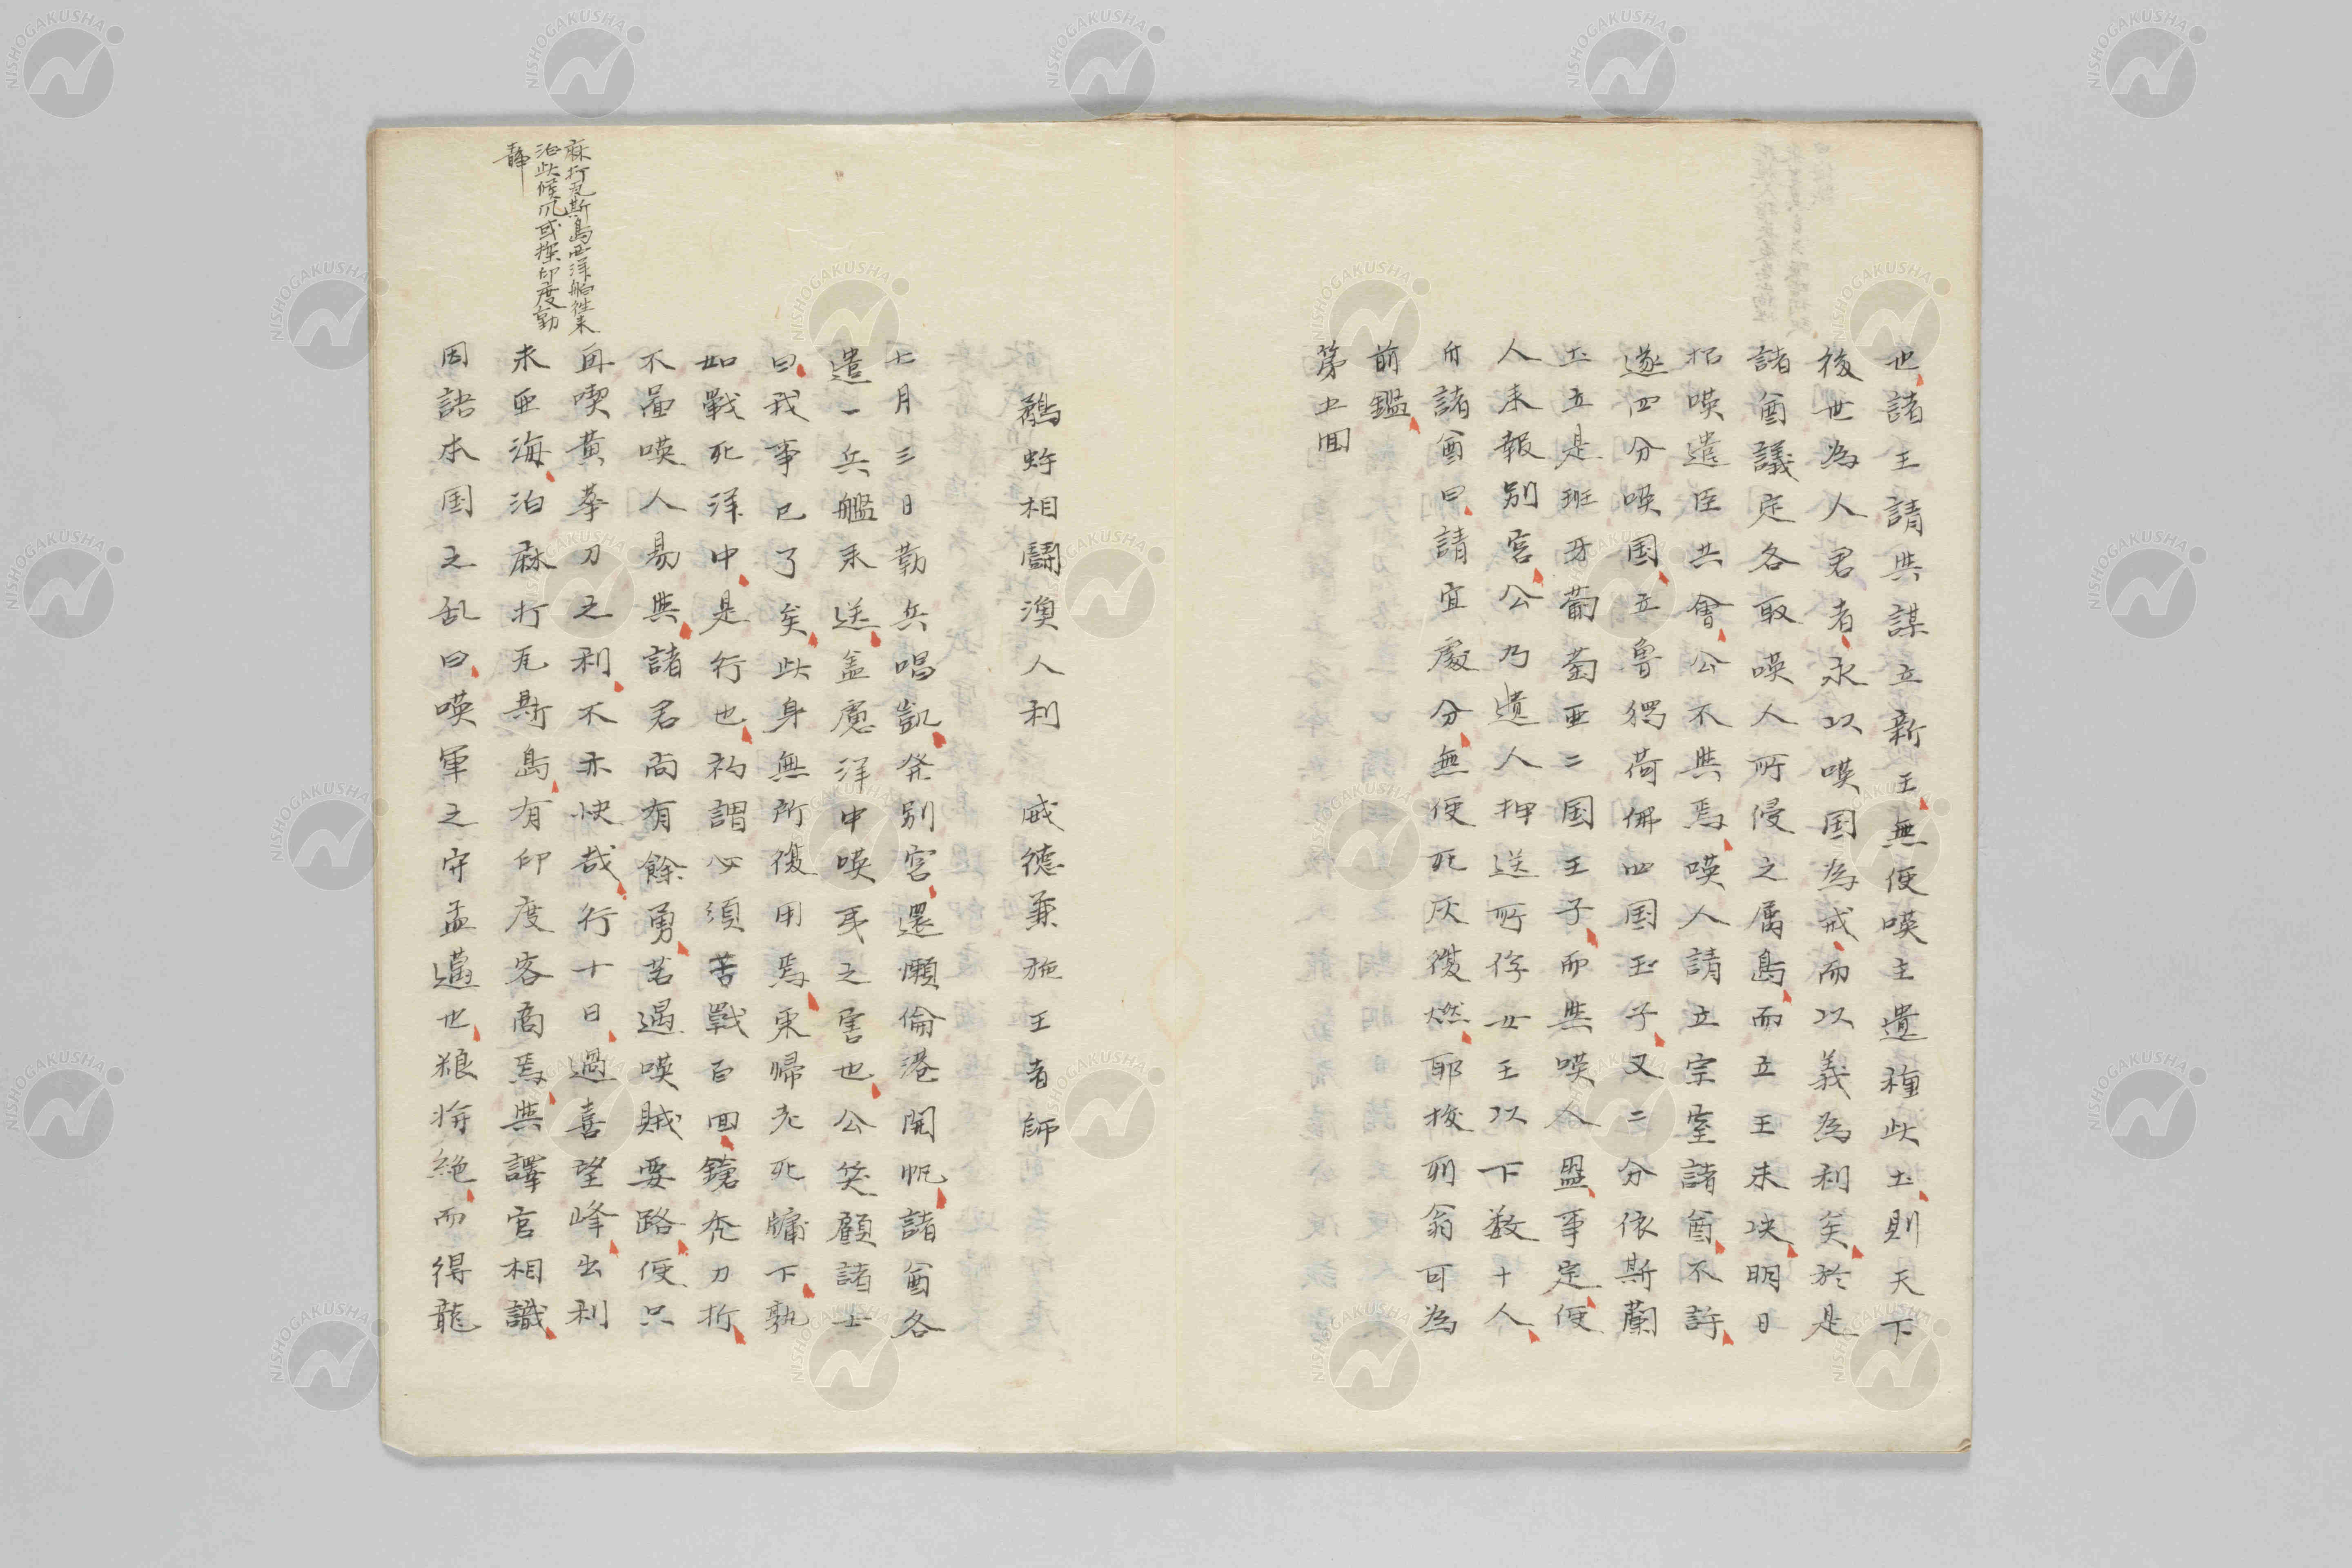 也諸王請共謀立新王無使嘆主遺種此土則天下
後世為人君者永以嘆国為戒而以義為利矣於是
諸酋議定各取嘆人所侵之属島而立王未决明日
招嘆遺臣共會公不與焉嘆人請立宗室諸酋不許
遂四分嘆国立魯獨荷佛四国王子又二分依斯蘭
土立是班牙葡萄亜二国王子而與嘆人盟事定便
人来報別宮公乃遺人押送所俘女王以下数十人
付諸酋曰請宜處分無使死灰復燃耶梭列翁可為
前鑑
第五回
鷸蚌相鬪漁人利　威徳兼施王者師
七月三日勒兵唱凱発別宮還爾倫港開帆諸酋各
遣一兵艦来送盖慮洋中嘆耳之害也公笑顧諸士
曰我事已了矣此身無所復用焉東帰老死牖下孰
如戰死洋中是行也初謂必須苦戰百回鎗禿刀折
不啚嘆人易與諸君尚有餘勇若遇嘆賊要路便只
再喫黄拳刀之利不亦快哉行十日過喜望峰出利
未亜海泊麻打瓦斯島有印度客商焉與譯官相識
因語本国之乱曰嘆軍之守孟邁也粮将絶而得龍
麻打瓦斯島西洋舶徃来
泊此候风或探印度動
静
NISHOGAKUSHA